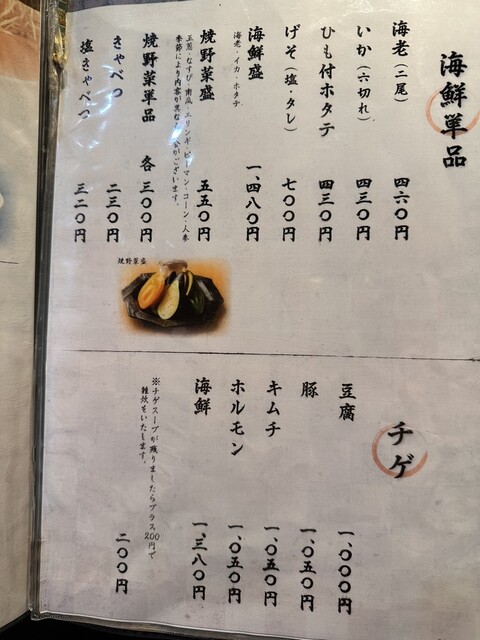 海鮮単品
海老（二尾） 四六〇円
いか（六切れ） 四三〇円
ひも付ホタテ 四三〇円
げそ（塩・タレ） 七〇〇円
海鮮盛 一、四八〇円
海老・イカ・ホタテ
焼野菜盛 五五〇円
玉葱・なすび・南瓜・エリンギ・ピーマン・コーン・人参
季節により内容が異なる 合がございます。
焼野菜単品 各 三〇〇円
きゃべつ 二三〇円
塩きゃべつ 三二〇円
焼野菜盛
チゲ
豆腐 一、〇〇〇円
豚 一、〇五〇円
キムチ 一、〇五〇円
ホルモン 一、〇五〇円
海鮮 一、三八〇円
※チゲスープが残りましたらプラス200円で
雑炊をいたします。 二〇〇円